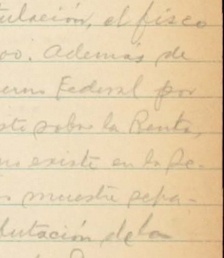 tulación, el fisco
oo. Además de
erno Federal por
sto sobre la Renta,
existe en la Re-
muestre sepa-
putación de la